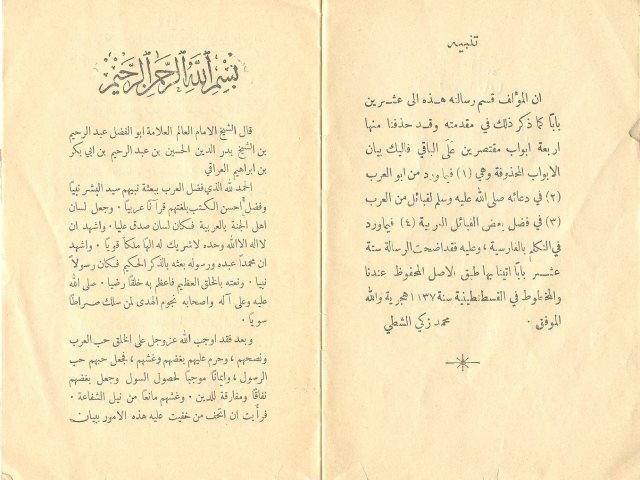 تنبيه
ان المؤلف قسم رسالته هذه الى عشرين
بابًا كما ذكر ذلك في مقدمته وقد حذفنا منها
اربعة ابواب مقتصرين عَلَى الباقي فاليك بيان
الابواب المحذوفة وهي (١) فيما ورد من ابو العرب
(٢) في دعائه صلى الله عليه وسلم لقبائل من العرب
(٣) في فضل بعض القبائل العربية (٤) فيما ورد
في التكلم بالفارسية ، وعليه فقد اضحت الرسالة ستة
عشر بابًا اتينا بها طبق الاصل المحفوظ عندنا
والمخطوط في القسطنطينية سنة ١١٣٧ هجرية والله
الموفق . محمد زكي الشطي
بسم الله الرحمن الرحيم
قال الشيخ الامام العالم العلامة ابو الفضل عبد الرحيم
بن الشيخ بدر الدين الحسين بن عبد الرحيم بن ابي بكر
بن ابراهيم العراقي
الحمد لله الذي فضل العرب ببعثة نبيهم سيد البشر نبيًا
وفضل أحسن الكتب بلغتهم قرآنًا عربيًا . وجعل لسان
اهل الجنة بالعربية فكان لسان صدق عليا . واشهد ان
لااله الاالله وحده لاشريك له الهًا ملكًا قويًا . واشهد
ان محمداً عبده ورسوله بعثه بالذكر الحكيم فكان رسولاً
نبيا . ونعته بالخلق العظيم فاعظم به خلقًا رضيا . صلى الله
عليه وعلى آله واصحابه نجوم الهدى لمن سلك صراطًا
سويًا .
وبعد فقد اوجب الله عزوجل على الخلق حب العرب
ونصحهم ، وحرم عليهم بغضهم وغشهم ، فجعل حبهم حب
الرسول ، وايمانًا موجبًا لحصول السول وجعل بغضهم
نفاقًا ومفارقة للدين . وغشهم مانعًا من نيل الشفاعة .
فرأيت ان اتحف من خفيت عليه هذه الامور ببيان